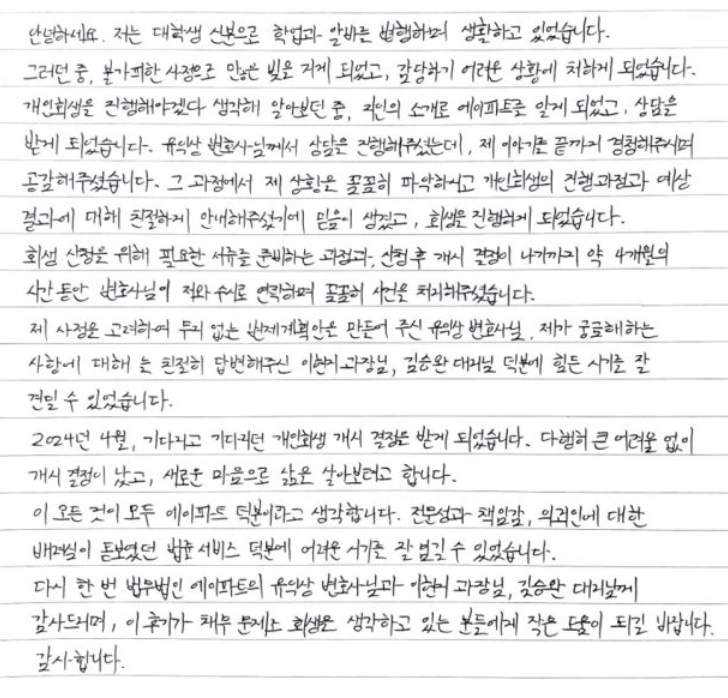 안녕하세요. 저는 대학생 신분으로 학업과 알바를 병행하며 생활하고 있었습니다.
그러던 중, 불가피한 사정으로 많은 빚을 지게 되었고, 감당하기 어려운 상황에 처하게 되었습니다.
개인회생을 진행해야겠다 생각해 알아보던 중, 지인의 소개로 에이파트를 알게 되었고, 상담을
받게 되었습니다. 유익상 변호사님께서 상담을 진행해주셨는데, 제 이야기를 끝까지 경청해주시며
공감해주셨습니다. 그 과정에서 제 상황을 꼼꼼히 파악하시고 개인회생의 진행과정과 예상
결과에 대해 친절하게 안내해주셨기에 믿음이 생겼고, 회생을 진행하게 되었습니다.
회생 신청을 위해 필요한 서류를 준비하는 과정과, 신청 후 개시 결정이 나기까지 약 4개월의
시간동안 변호사님이 저와 수시로 연락하며 꼼꼼히 사건을 처리해주셨습니다.
제 사정을 고려하여 무리 없는 변제계획안을 만들어 주신 유익상 변호사님, 제가 궁금해하는
사항에 대해 늘 친절히 답변해주신 이현지 과장님, 김승완 대리님 덕분에 힘든 시기를 잘
견딜 수 있었습니다.
2024년 4월, 기다리고 기다리던 개인회생 개시 결정을 받게 되었습니다. 다행히 큰 어려움 없이
개시 결정이 났고, 새로운 마음으로 삶을 살아보려고 합니다.
이 모든 것이 모두 에이파트 덕분이라고 생각합니다. 전문성과 책임감, 의뢰인에 대한
배려심이 돋보였던 법률 서비스 덕분에 어려운 시기를 잘 넘길 수 있었습니다.
다시 한 번 법무법인 에이파트의 유익상 변호사님과 이현지 과장님, 김승완 대리님께
감사드리며, 이 후기가 채무 문제로 회생을 생각하고 있는 분들에게 작은 도움이 되길 바랍니다.
감사합니다.